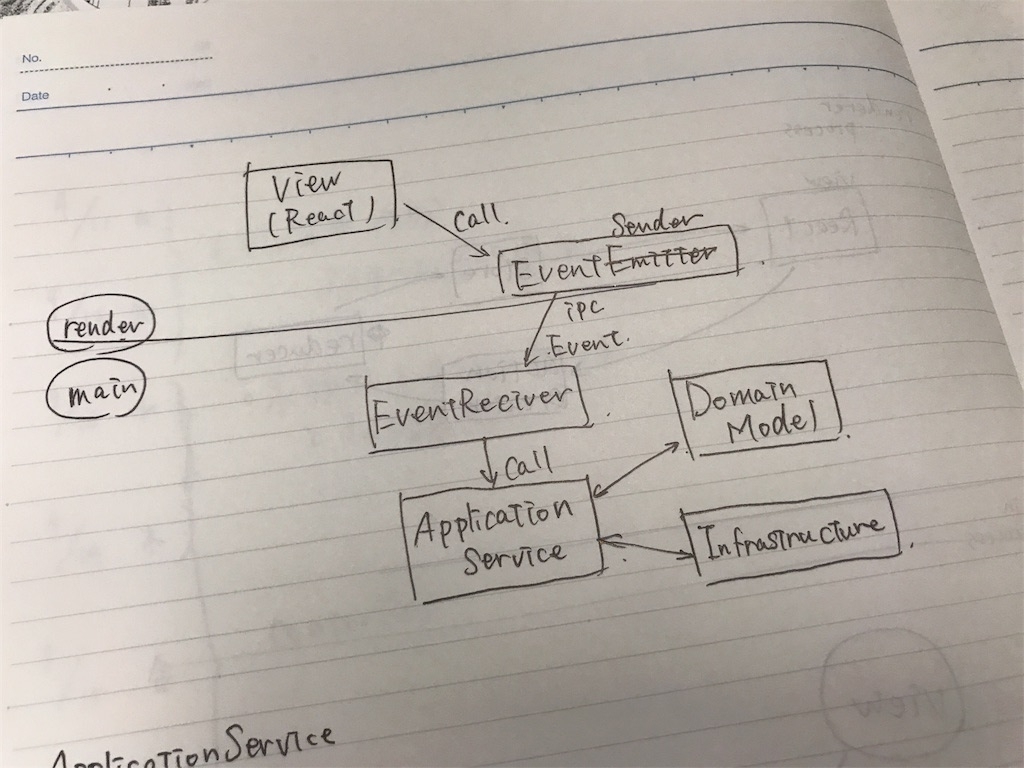 No.
Date
View
(React)
call.
Sender
EventEmitter
ipc
Event.
render
main
EventReciver
Domain
Model
call
Application
Service
Infrastructure
ApplicationService